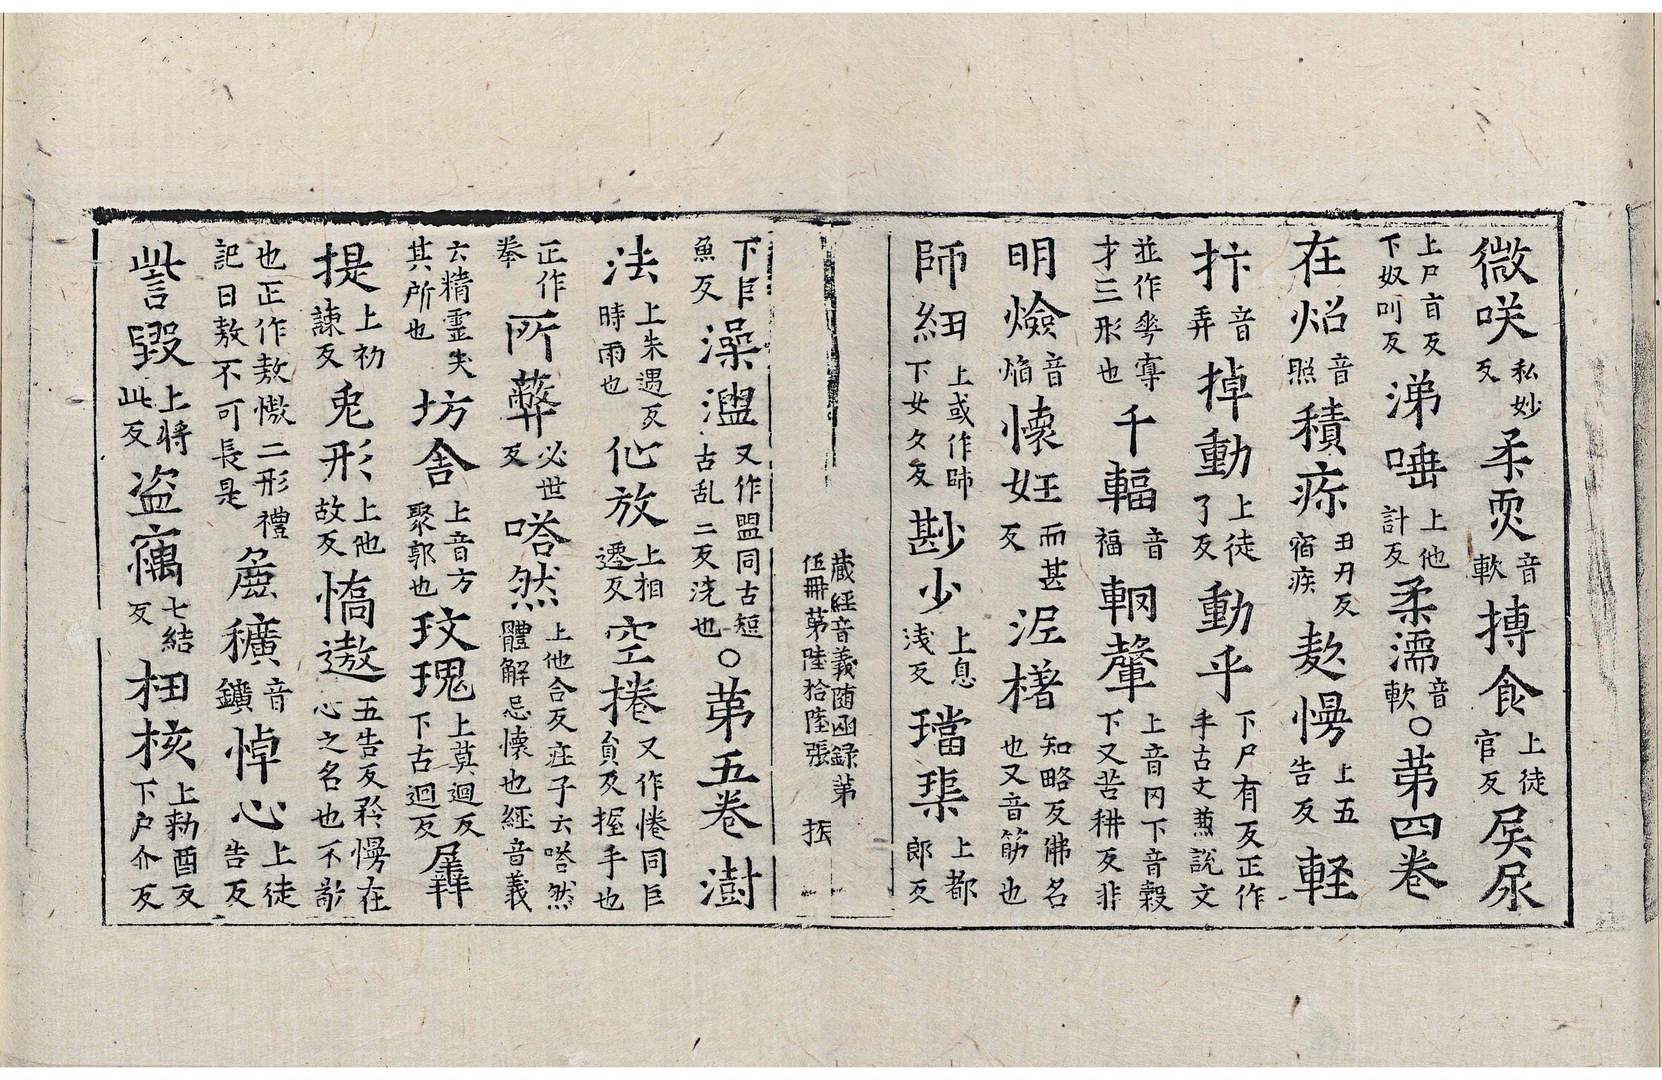 微咲私妙反柔耎音軟摶食上徒官反屎尿
上尸旨反下奴叫反涕唾上他計反柔濡音軟○第四卷
在炤音照積疢丑刃反宿疾慠慢上五告反輕
抃音弄掉動上徒了反動乎下尸有反正作手古文𠦪說文
並作𠦪𡴘才三形也千輻音福軔㲄上音冈下音穀下又苦耕反非
明燄音焰懷妊而甚反泥櫡知略反佛名也又音筯也
師紐上或作帥下女久反尠少上息浅反璫琹上都郎反
藏經音義随函録第伍冊第陸拾陸張 振
下巨魚反澡盥又作盥同古短古乱二反洗也○第五卷澍
法上朱遇反時雨也仙放上相遷反空捲又作惓同巨員反握手也
正作拳所蔽必世反嗒然上他合反庄子云嗒然體解忌懷也經音義
云精霊失其所也坊舍上音方聚郭也玫瑰上莫迴反下古迴反羼
提上初諫反兎形上他故反憍遨五告反矜慢在心之名也不敬
也正作敖慠二形禮記曰敖不可長是麁穬音鑛悼心上徒告反
訾毀上將此反盗竊七結反杻核上勑酉反下户介反